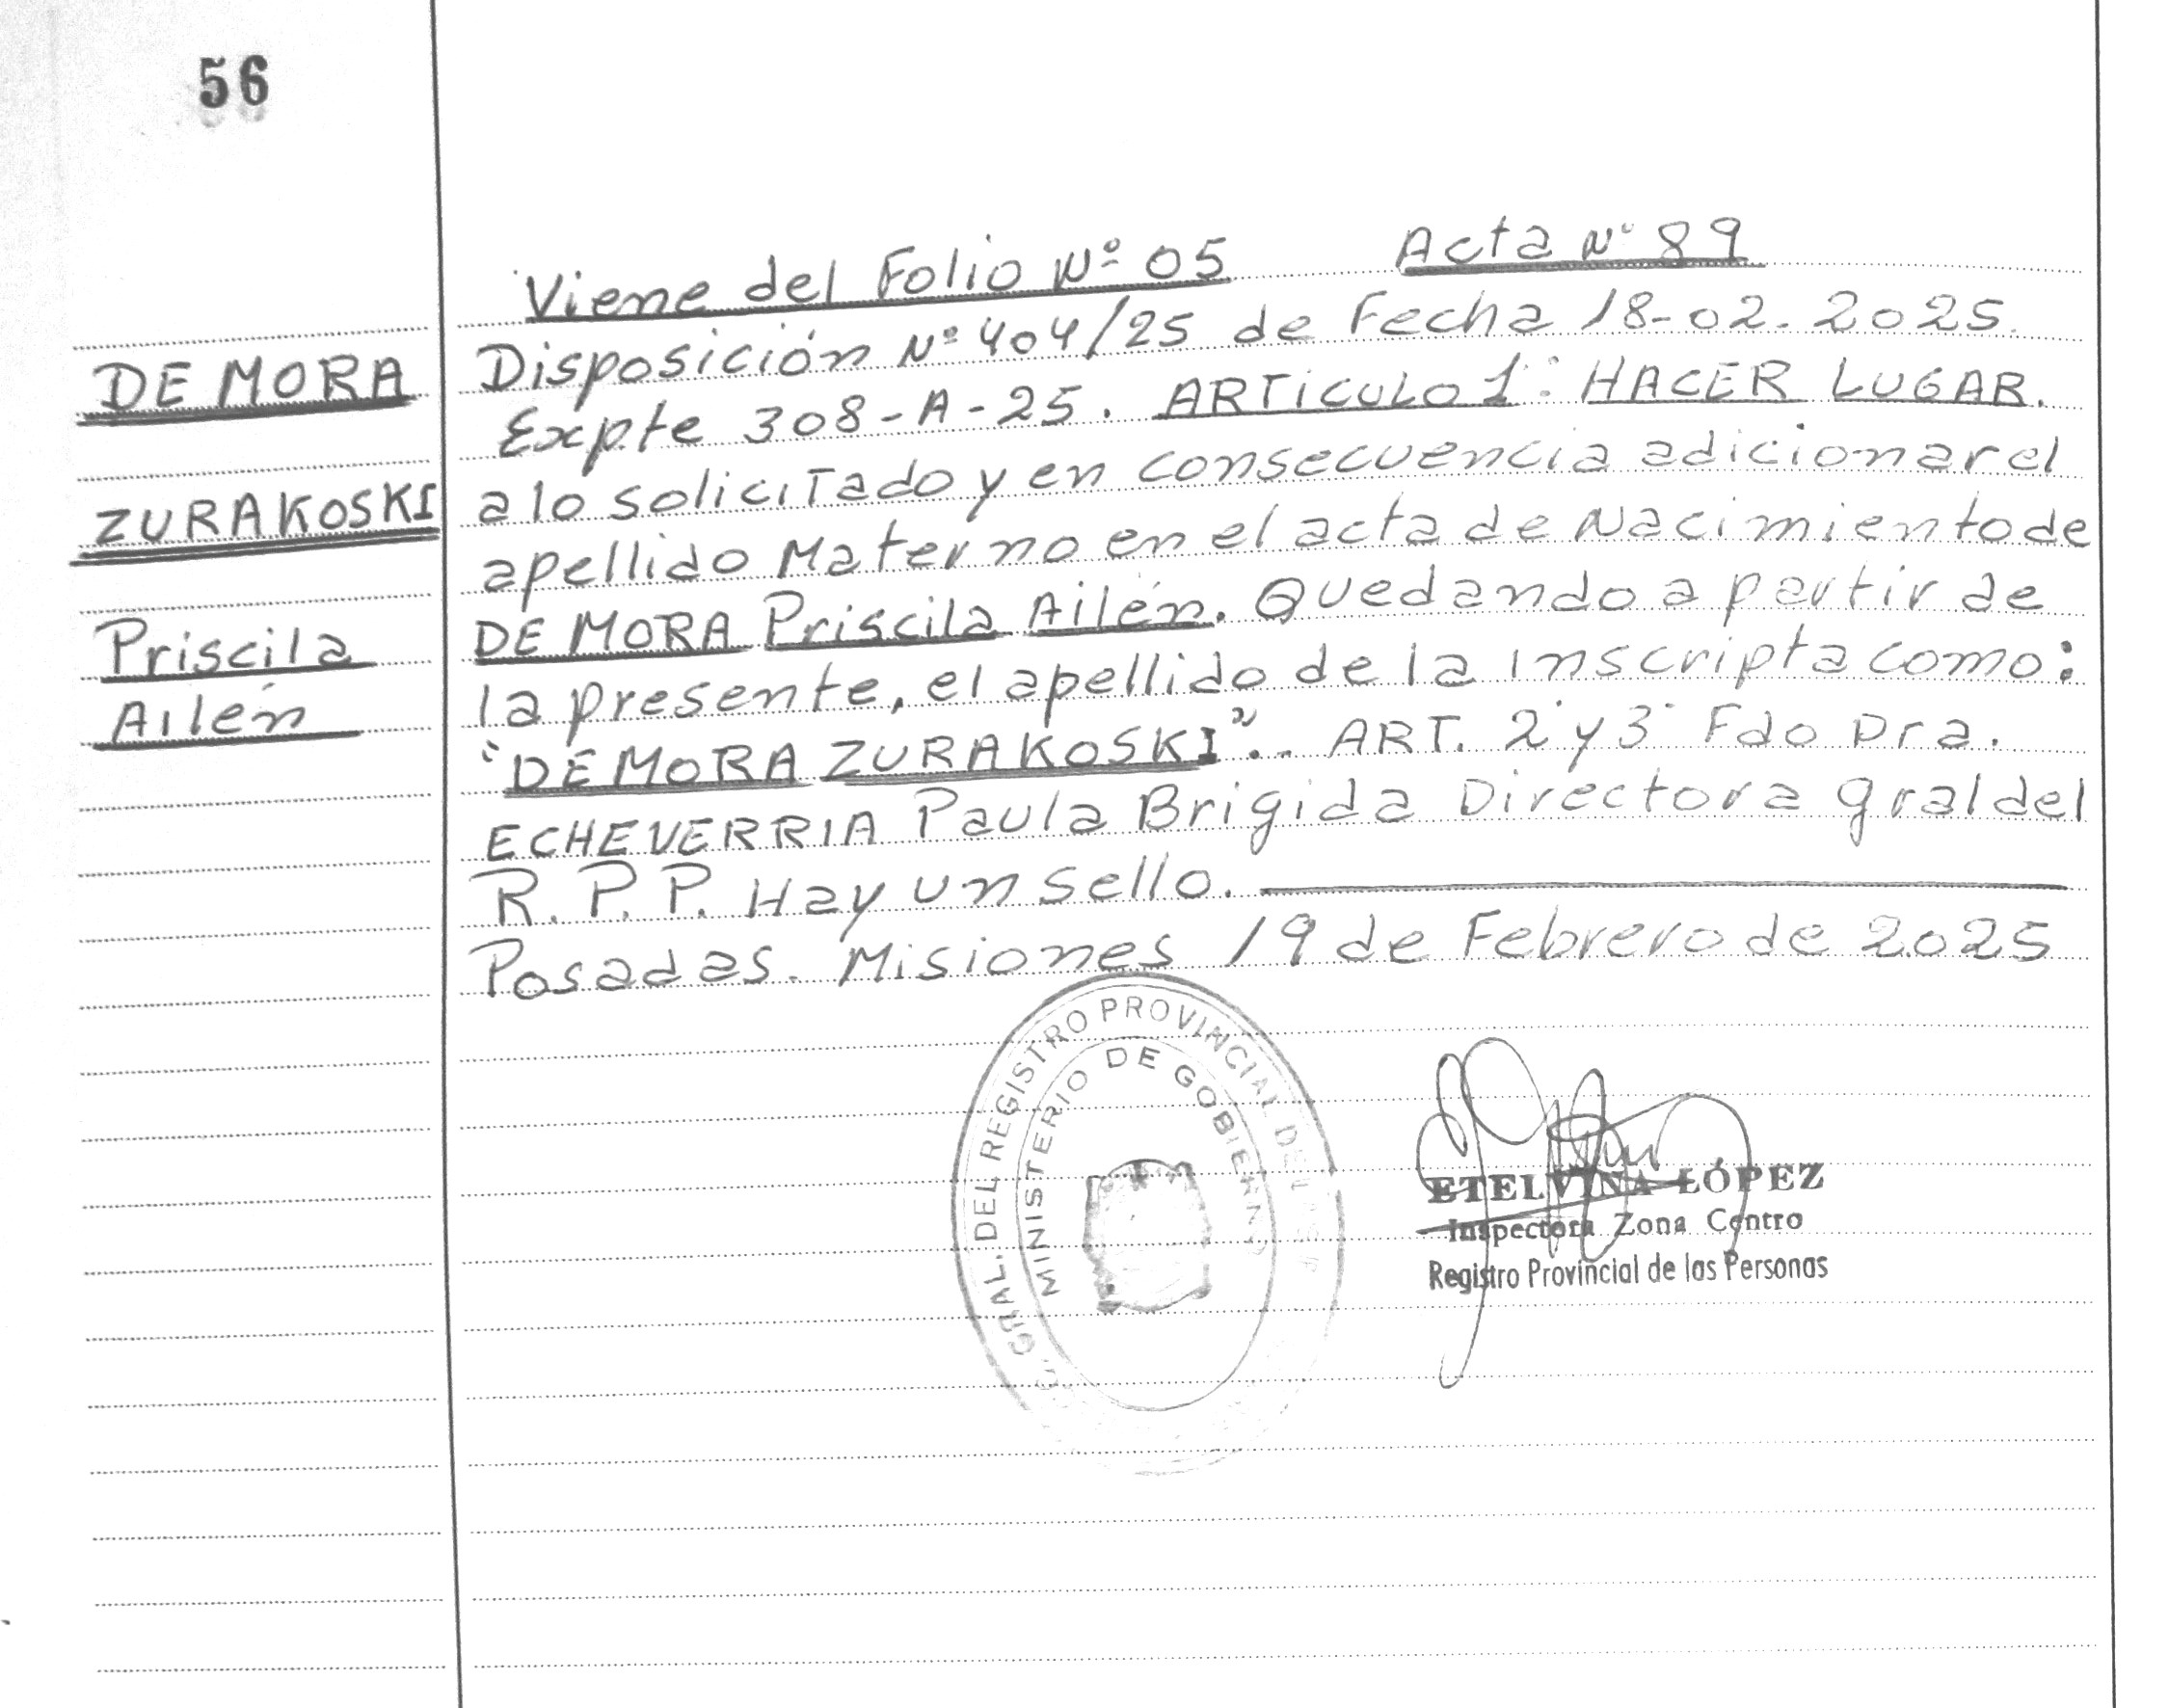 56
Viene del Folio Nº 05 Acta Nº 89
DE MORA
ZURAKOSKI
Priscila
Ailén
Disposición Nº 404/25 de Fecha 18-02-2025.
Expte 308-A-25. ARTICULO 1°: HACER LUGAR.
a lo solicitado y en consecuencia adicionar el
apellido Materno en el acta de Nacimiento de
DE MORA Priscila Ailén. Quedando a partir de
la presente, el apellido de la inscripta como:
"DE MORA ZURAKOSKI".- ART. 2° y 3° Fdo Dra.
ECHEVERRIA Paula Brigida Directora gral del
R. P. P. Hay un sello.
Posadas. Misiones 19 de Febrero de 2025
GRAL. DEL REGISTRO PROVINCIAL DE LAS P
MINISTERIO DE GOBIERNO
ETELVINA LÓPEZ
Inspectora Zona Centro
Registro Provincial de las Personas